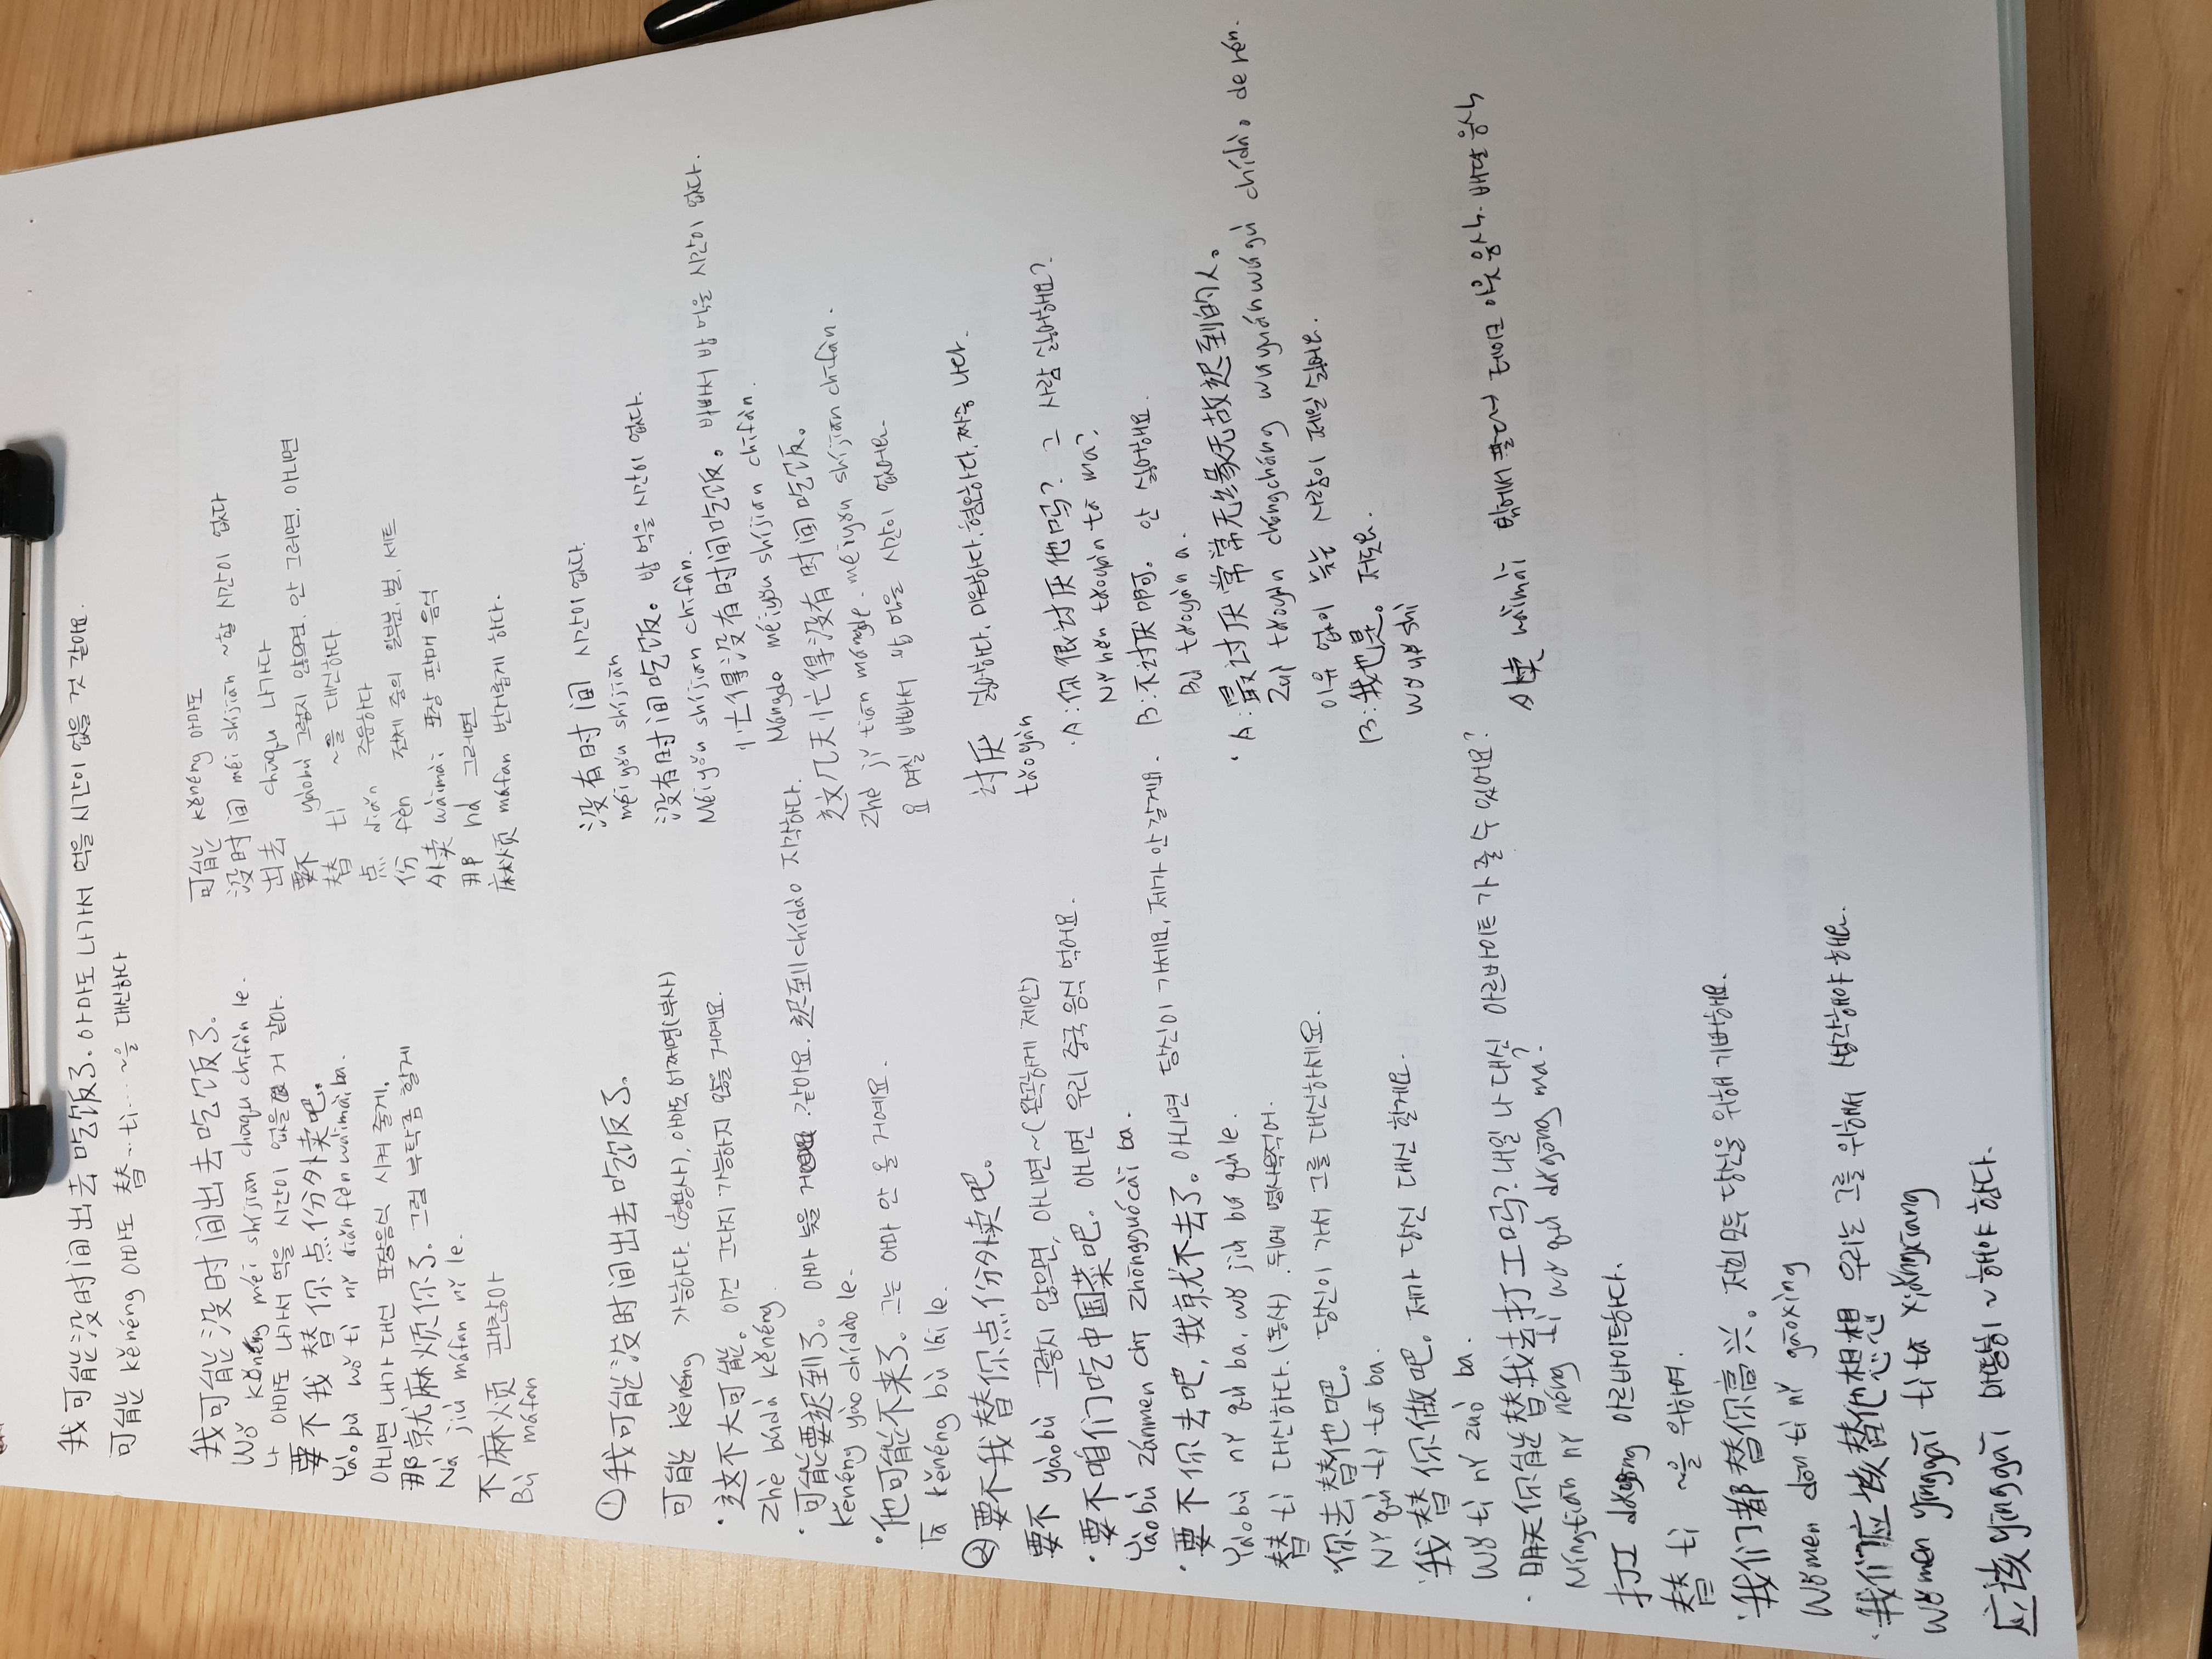 我可能没时间出去吃饭了. 아마도 나가서 먹을 시간이 없을 것 같아요.
可能 kěnéng 아마도 替…tì… ~을 대신하다
我可能没时间出去吃饭了.
Wǒ kěnéng méi shíjiān chūqu chīfàn le.
나 아마도 나가서 먹을 시간이 없을 거 같아.
要不我替你点份外卖吧.
Yàobù wǒ tì nǐ diǎn fèn wàimài ba.
아니면 내가 대신 포장음식 시켜 줄게.
那就麻烦你了. 그럼 부탁좀 할게
Nà jiù máfan nǐ le.
不麻烦 괜찮아
Bù máfan
可能 kěnéng 아마도
没时间 méi shíjiān ~할 시간이 없다
出去 chūqu 나가다
要不 yàobù 그렇지 않으면, 안 그러면, 아니면
替 tì ~을 대신하다
点 diǎn 주문하다
份 fèn 전체 중의 일부분, 벌, 세트
外卖 wàimài 포장 판매 음식
那 nà 그러면
麻烦 máfan 번거롭게 하다.
① 我可能没时间出去吃饭了.
可能 kěnéng 가능하다. (형용사), 아마도 어쩌면(부사)
· 这不大可能。 이건 그다지 가능하지 않을 거예요.
Zhè búdà kěnéng.
· 可能要迟到了。 아마 늦을 거 같아요. 迟到 chídào 지각하다.
Kěnéng yào chídào le.
· 他可能不来了。 그는 아마 안 올 거예요.
Tā kěnéng bù lái le.
② 要不我替你点份外卖吧。
要不 yàobù 그렇지 않으면, 아니면~(완곡하게 제안)
· 要不咱们吃中国菜吧. 아니면 우리 중국 음식 먹어요.
Yàobù zánmen chī Zhōngguócài ba.
· 要不你去吧, 我就不去了。 아니면 당신이 가세요, 제가 안 갈게요.
Yàobù nǐ qù ba, wǒ jiù bú qù le.
替 tì 대신하다. (동사). 뒤에 명사 적어.
· 你去替他吧。 당신이 가서 그를 대신하세요.
Nǐ qù tì tā ba.
· 我替你做吧。 제가 당신 대신 할게요.
Wǒ tì nǐ zuò ba.
· 明天你能替我去打工吗? 내일 나 대신 아르바이트 가 줄 수 있어요?
Míngtiān nǐ néng tì wǒ qù dǎgōng ma?
打工 dǎgōng 아르바이트하다.
替 tì ~을 위하여.
· 我们都替你高兴。 저희 모두 당신을 위해 기뻐해요.
Wǒmen dōu tì nǐ gāoxìng
· 我们应该替他想想 우리는 그를 위해서 생각해야 해요.
Wǒmen yīnggāi tì tā xiǎngxiang
应该 yīnggāi 마땅히 ~해야 한다.
没有时间 시간이 없다.
méiyǒu shíjiān
没有时间吃饭。 밥 먹을 시간이 없다.
Méiyǒu shíjiān chīfàn.
忙得没有时间吃饭。 바빠서 밥 먹을 시간이 없다.
Mángde méiyǒu shíjiān chīfàn.
这几天忙得没有时间吃饭。
Zhè jǐ tiān mángde. méiyǒu shíjiān chīfàn.
요 며칠 바빠서 밥 먹을 시간이 없어요.
讨厌 싫어하다, 미워하다, 혐오하다, 짜증 나다.
tǎoyàn
· A: 你很讨厌他吗? 그 사람 싫어해요?
Nǐ hěn tǎoyàn tā ma?
B: 不讨厌啊。 안 싫어해요.
Bù tǎoyàn a.
· A: 最讨厌常常无缘无故迟到的人。
Zuì tǎoyàn chángcháng wúyuánwúgù chídào de rén.
이유 없이 늦는 사람이 제일 싫어요.
B: 我也是。 저도요.
Wǒ yě shì
外卖 wàimài 밖에서 팔다 테이크 아웃 음식. 배달 음식